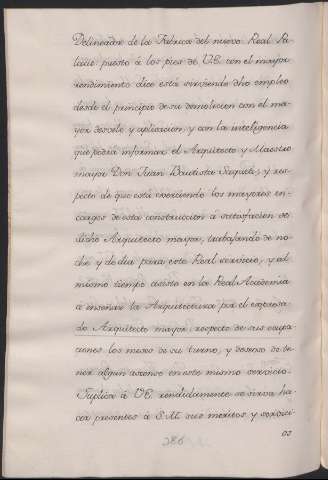 Delineador de la Fabrica del nuevo Real Pa-
lacio puesto à los pies de V.E. con el mayor
rendimiento dice està sirviendo dho empleo
desde el principio de su demolicion con el ma-
yor desvelo y aplicacion, y con la inteligencia
que podrà informar el Arquitecto y Maestro
mayor Don Juan Bautista Saqueti, y res-
pecto de que està exerciendo los mayores en-
cargos de esta construccion à satisfaccion de
dicho Arquitecto mayor, trabajando de no-
che y de dia para este Real servicio, y al
mismo tiempo asiste en la Real Academia
à enseñar la Arquitectura por el expresa-
do Arquitecto mayor, respecto de sus ocupa-
ciones los meses de su turno, y deseoso de te-
ner algun ascenso en este mismo servicio.
Suplica à V.E. rendidamente se sirva ha-
cer presentes à S.M. sus meritos y servici-
os